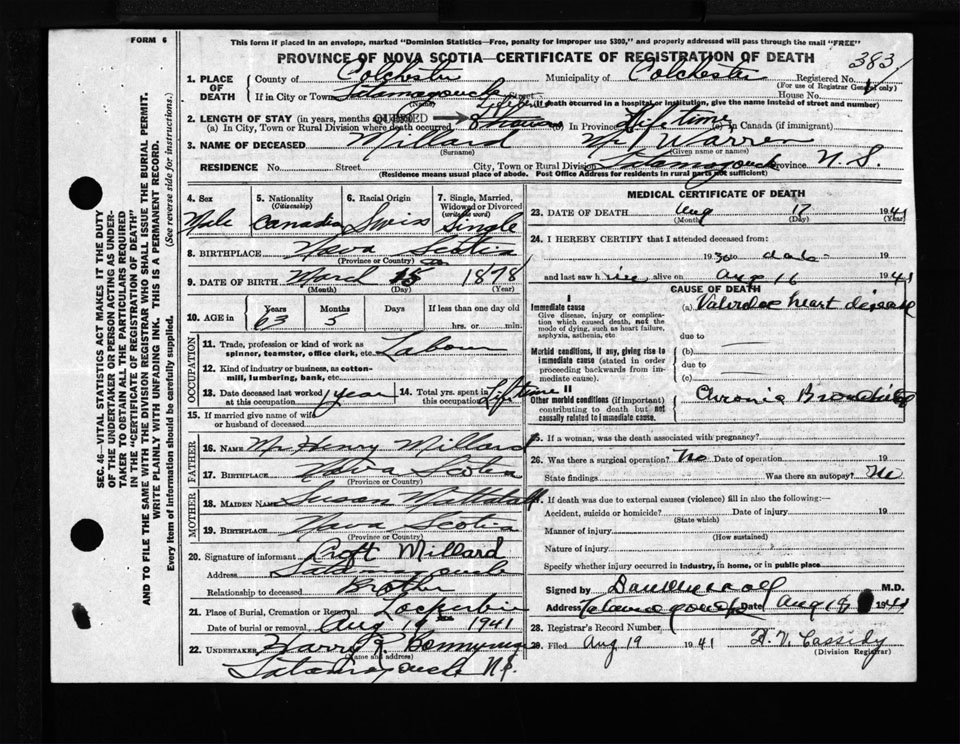 FORM 6
This form if placed in an envelope, marked "Dominion Statistics—Free, penalty for improper use $300," and properly addressed will pass through the mail "FREE"
PROVINCE OF NOVA SCOTIA—CERTIFICATE OF REGISTRATION OF DEATH
383
1. PLACE OF DEATH
County of Colchester
Municipality of Colchester
Registered No.
(For use of Registrar General only)
If in City or Town Tatamagouche Street
House No.
(Name)
(If death occurred in a hospital or institution, give the name instead of street and number)
2. LENGTH OF STAY (in years, months
QUERIED
(a) In City, Town or Rural Division where death occurred
(b) In Province Life time (c) in Canada (if immigrant)
3. NAME OF DECEASED Millard Mr Warren
(Surname) (Given name or names)
RESIDENCE No. Street City, Town or Rural Division Tatamagouche Province N.S.
(Residence means usual place of abode. Post Office Address for residents in rural parts not sufficient)
4. Sex Male
5. Nationality (Citizenship) Canadian
6. Racial Origin Swiss
7. Single, Married, Widowed or Divorced (write the word) Single
8. BIRTHPLACE Nova Scotia
(Province or Country)
9. DATE OF BIRTH March 15 1878
(Month) (Day) (Year)
10. AGE in Years 63 Months 5 Days If less than one day old hrs. or min.
OCCUPATION
11. Trade, profession or kind of work as spinner, teamster, office clerk, etc. Labour
12. Kind of industry or business, as cotton-mill, lumbering, bank, etc.
13. Date deceased last worked at this occupation 1 year
14. Total yrs. spent in this occupation Lifetime
15. If married give name of wife or husband of deceased
FATHER
16. NAME Mr Henry Millard
17. BIRTHPLACE Nova Scotia
(Province or Country)
MOTHER
18. MAIDEN NAME Susan Mattatall
19. BIRTHPLACE Nova Scotia
(Province or Country)
20. Signature of informant Croft Millard
Address Tatamagouche
Relationship to deceased Brother
21. Place of Burial, Cremation or Removal
Date of burial or removal Aug 19 1941
22. UNDERTAKER Harry R.
(Name and address)
Tatamagouche N.S.
MEDICAL CERTIFICATE OF DEATH
23. DATE OF DEATH Aug 17 1941
(Month) (Day) (Year)
24. I HEREBY CERTIFY that I attended deceased from:
1930 to date 19
and last saw him alive on Aug 16 1941
CAUSE OF DEATH
I
Immediate cause
Give disease, injury or complication which caused death, not the mode of dying, such as heart failure, asphyxia, asthenia, etc
(a) Valvular heart disease
due to
Morbid conditions, if any, giving rise to immediate cause (stated in order proceeding backwards from immediate cause).
(b)
due to
(c)
II
Other morbid conditions (if important) contributing to death but not causally related to immediate cause.
Chronic Bronchitis
25. If a woman, was the death associated with pregnancy?
26. Was there a surgical operation? No Date of operation 19
State findings Was there an autopsy? No
27. If death was due to external causes (violence) fill in also the following:—
Accident, suicide or homicide? Date of injury 19
(State which)
Manner of injury
(How sustained)
Nature of injury
Specify whether injury occurred in industry, in home, or in public place
Signed by M.D.
Address Tatamagouche Date Aug 19 1941
28. Registrar's Record Number
29. Filed Aug 19 1941 Cassidy
(Division Registrar)
SEC. 46—VITAL STATISTICS ACT MAKES IT THE DUTY
OF THE UNDERTAKER OR PERSON ACTING AS UNDERTAKER TO OBTAIN ALL THE PARTICULARS REQUIRED
IN THE "CERTIFICATE OF REGISTRATION OF DEATH" AND
TO FILE THE SAME WITH THE DIVISION REGISTRAR WHO SHALL ISSUE THE BURIAL PERMIT.
WRITE PLAINLY WITH UNFADING INK. THIS IS A PERMANENT RECORD.
Every item of information should be carefully supplied. (See reverse side for instructions.)